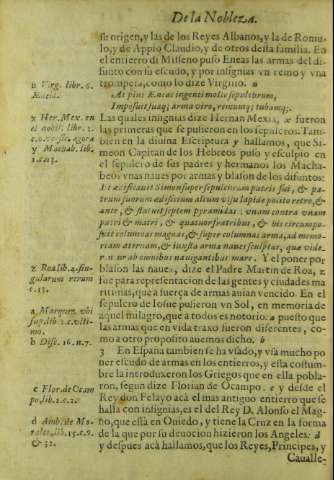 De la Nobleza.
se origen, y las de los Reyes Albanos, y la de Romu-
lo, y de Appio Claudio, y de otros desta familia. En
el entierro di Misseno puso Eneas las armas del di-
funto con su escudo, y por insignias vn remo y vna
trompeta, como lo dize Virgilio. u
At pius Eneas ingenti mole sepulchrum,
Imposuit suaq; arma viro, remumq; tubamq;.
Las quales insignias dize Hernan Mexia, x fueron
las primeras que se pusieron en los sepulcros. Tam-
bien en la diuina Escriptura y hallamos, que Si-
meon Capitan de los Hebreos puso y esculpio en
el sepulcro de sus padres y hermanos los Macha-
beos vnas naues por armas y blason de los difuntos:
Et ædificauit Simon super sepulcrum patris sui, & pa-
trum suorum ædificium altum visu lapide polito retro, &
ante, & statuit septem pyramidas: vnam contra vnam
patri & matri, & quatuor fratribus, & his circumpo-
suit columnas magnas, & super columnas arma, ad memo-
riam æternam, & iuxta arma naues sculptas, quæ vide-
rētur ab omnibus nauigantibus mare. Y el poner por
blason las naues, dize el Padre Martin de Roa, z
fue para representacion de las gentes y ciudades ma
ritimas, que a fuerça de armas auian vencido. En el
sepulcro de Iosue pusieron vn Sol, en memoria de
aquel milagro, que a todos es notorio: a puesto que
las armas que en vida traxo fueron diferentes, co-
mo a otro proposito auemos dicho. b
3 En España tambien se ha vsado, y vsa mucho po
ner escudo de armas en los entierros, y esta costum-
bre la introduxeron los Griegos que en ella pobla-
ron, segun dize Florian de Ocampo. c y desde el
Rey don Pelayo acà el mas antiguo entierro que se
halla con insignias, es el del Rey D. Alonso el Mag-
no, que està en Ouiedo, y tiene la Cruz en la forma
de la que por su deuocion hizieron los Angeles. d
y despues acà hallamos, que los Reyes, Principes, y
Caualle-
u Virg. libr. 6.
Eneid.
x Her. Mex. en
el nobil. libr. 2.
y Machab. lib.
1. c. 13.
z Roa lib. 4. sin-
gularum rerum
c. 13.
a Marquez vbi
sup. lib. 2. c. vlti-
mo.
b Disc. 16. n. 7.
c Flor. de Ocam
po, lib. 2. c. 2.
d Amb. de Mo-
rales, lib. 15. c. 9.
& 32.